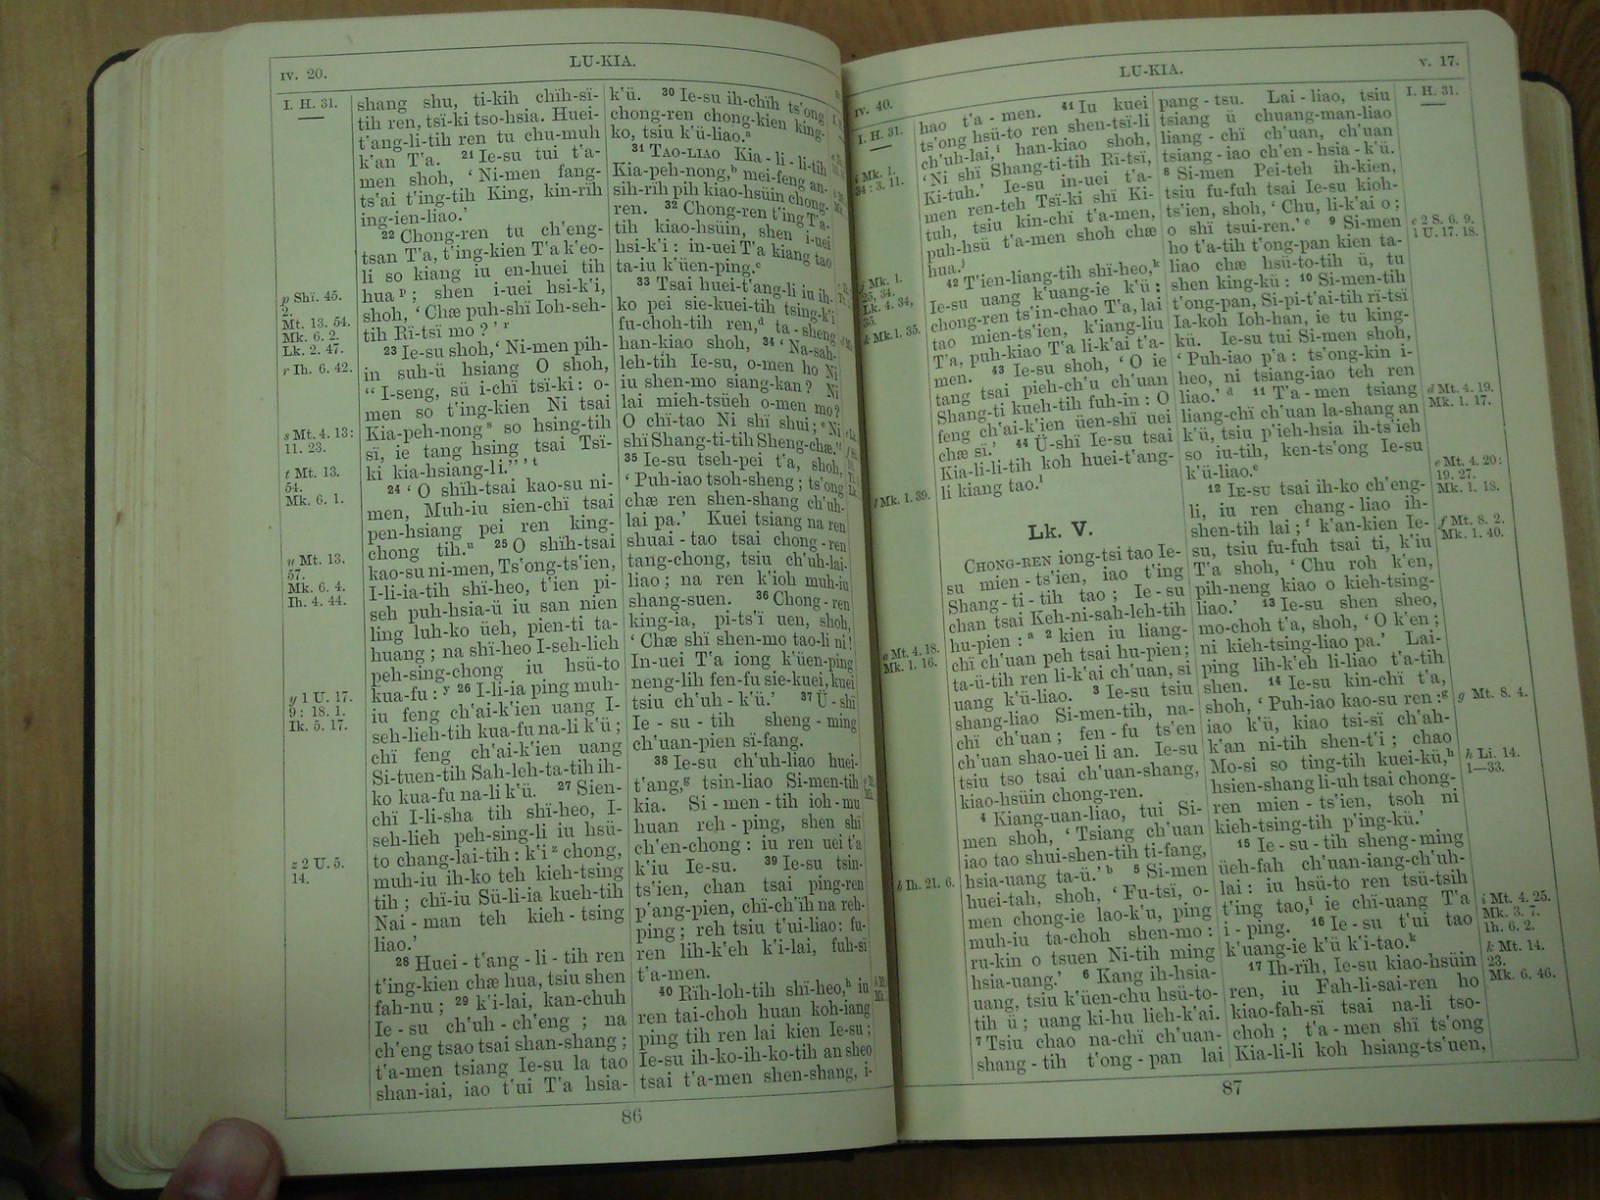 iv. 20.
LU-KIA.
I. H. 31.
shang shu, ti-kih chïh-sï-
tih ren, tsï-ki tso-hsia. Huei-
t'ang-li-tih ren tu chu-muh
k'an T'a. ²¹ Ie-su tui t'a-
men shoh, ‘ Ni-men fang-
ts'ai t'ing-tih King, kin-rïh
ing-ien-liao.’
²² Chong-ren tu ch'eng-
tsan T'a, t'ing-kien T'a k'eo-
li so kiang iu en-huei tih
hua ᵖ ; shen i-uei hsi-k'i,
shoh, ‘ Chæ puh-shï Ioh-seh-
tih Rï-tsï mo ? ’ ʳ
²³ Ie-su shoh, ‘ Ni-men pih-
in suh-ü hsiang O shoh,
“ I-seng, sü i-chï tsï-ki : o-
men so t'ing-kien Ni tsai
Kia-peh-nong ˢ so hsing-tih
sï, ie tang hsing tsai Tsï-
ki kia-hsiang-li.” ’ ᵗ
²⁴ ‘ O shïh-tsai kao-su ni-
men, Muh-iu sien-chï tsai
pen-hsiang pei ren king-
chong tih.ᵘ ²⁵ O shïh-tsai
kao-su ni-men, Ts'ong-ts'ien,
I-li-ia-tih shï-heo, t'ien pi-
seh puh-hsia-ü iu san nien
ling luh-ko üeh, pien-ti ta-
huang ; na shï-heo I-seh-lieh
peh-sing-chong iu hsü-to
kua-fu : ʸ ²⁶ I-li-ia ping muh-
iu feng ch'ai-k'ien uang I-
seh-lieh-tih kua-fu na-li k'ü ;
chï feng ch'ai-k'ien uang
Si-tuen-tih Sah-leh-ta-tih ih-
ko kua-fu na-li k'ü. ²⁷ Sien-
chï I-li-sha tih shï-heo, I-
seh-lieh peh-sing-li iu hsü-
to chang-lai-tih : k'i ᶻ chong,
muh-iu ih-ko teh kieh-tsing
tih ; chï-iu Sü-li-ia kueh-tih
Nai - man teh kieh - tsing
liao.’
²⁸ Huei - t'ang - li - tih ren
t'ing-kien chæ hua, tsiu shen
fah-nu ; ²⁹ k'i-lai, kan-chuh
Ie - su ch'uh - ch'eng ; na
ch'eng tsao tsai shan-shang ;
t'a-men tsiang Ie-su la tao
shan-iai, iao t'ui T'a hsia-
p Shï. 45.
2.
Mt. 13. 54.
Mk. 6. 2.
Lk. 2. 47.
r Ih. 6. 42.
s Mt. 4. 13:
11. 23.
t Mt. 13.
54.
Mk. 6. 1.
u Mt. 13.
57.
Mk. 6. 4.
Ih. 4. 44.
y 1 U. 17.
9 : 18. 1.
Ik. 5. 17.
z 2 U. 5.
14.
k'ü. ³⁰ Ie-su ih-chïh ts'ong
chong-ren chong-kien king-
ko, tsiu k'ü-liao.ᵃ
³¹ TAO-LIAO Kia - li - li-tih
Kia-peh-nong,ᵇ mei-feng an-
sih-rïh pih kiao-hsüin chong-
ren. ³² Chong-ren t'ing T'a-
tih kiao-hsüin, shen i-uei
hsi-k'i : in-uei T'a kiang tao
ta-iu k'üen-ping.ᶜ
³³ Tsai huei-t'ang-li iu ih-
ko pei sie-kuei-tih tsing-k'i
fu-choh-tih ren,ᵈ ta - sheng
han-kiao shoh, ³⁴ ‘ Na-sah-
leh-tih Ie-su, o-men ho Ni
iu shen-mo siang-kan ? Ni
lai mieh-tsüeh o-men mo ?
O chï-tao Ni shï shui ; ᵉ Ni
shï Shang-ti-tih Sheng-chæ.’
³⁵ Ie-su tseh-pei t'a, shoh,
‘ Puh-iao tsoh-sheng ; ts'ong
chæ ren shen-shang ch'uh-
lai pa.’ Kuei tsiang na ren
shuai - tao tsai chong - ren
tang-chong, tsiu ch'uh-lai-
liao ; na ren k'ioh muh-iu
shang-suen. ³⁶ Chong - ren
king-ia, pi-ts'ï uen, shoh,
‘ Chæ shï shen-mo tao-li ni !
In-uei T'a iong k'üen-ping
neng-lih fen-fu sie-kuei, kuei
tsiu ch'uh - k'ü.’ ³⁷ Ü - shï
Ie - su - tih sheng - ming
ch'uan-pien sï-fang.
³⁸ Ie-su ch'uh-liao huei-
t'ang,ᵍ tsin-liao Si-men-tih
kia. Si - men - tih ioh - mu
huan reh - ping, shen shï
ch'en-chong : iu ren uei t'a
k'iu Ie-su. ³⁹ Ie-su tsin-
ts'ien, chan tsai ping-ren
p'ang-pien, chï-ch'ïh na reh-
ping ; reh tsiu t'ui-liao: fu-
ren lih-k'eh k'i-lai, fuh-sï
t'a-men.
⁴⁰ Rïh-loh-tih shï-heo,ʰ iu
ren tai-choh huan koh-iang
ping tih ren lai kien Ie-su ;
Ie-su ih-ko-ih-ko-tih an sheo
tsai t'a-men shen-shang, i-
86
iv. 40.
LU-KIA.
v. 17.
I. H. 31.
hao t'a - men. ⁴¹ Iu kuei
ts'ong hsü-to ren shen-tsï-li
ch'uh-lai,ⁱ han-kiao shoh,
‘ Ni shï Shang-ti-tih Rï-tsï,
Ki-tuh.’ Ie-su in-uei t'a-
men ren-teh Tsï-ki shï Ki-
tuh, tsiu kin-chï t'a-men,
puh-hsü t'a-men shoh chæ
hua.ʲ
⁴² T'ien-liang-tih shï-heo,ᵏ
Ie-su uang k'uang-ie k'ü :
chong-ren ts'in-chao T'a, lai
tao mien-ts'ien, k'iang-liu
T'a, puh-kiao T'a li-k'ai t'a-
men. ⁴³ Ie-su shoh, ‘ O ie
tang tsai pieh-ch'u ch'uan
Shang-ti kueh-tih fuh-in : O
feng ch'ai-k'ien üen-shï uei
chæ sï.’ ⁴⁴ Ü-shï Ie-su tsai
Kia-li-li-tih koh huei-t'ang-
li kiang tao.ˡ
Lk. V.
CHONG-REN iong-tsi tao Ie-
su mien - ts'ien, iao t'ing
Shang - ti - tih tao ; Ie - su
chan tsai Keh-ni-sah-leh-tih
hu-pien : ᵃ ² kien iu liang-
chï ch'uan peh tsai hu-pien ;
ta-ü-tih ren li-k'ai ch'uan, si
uang k'ü-liao. ³ Ie-su tsiu
shang-liao Si-men-tih, na-
chï ch'uan ; fen - fu ts'en
ch'uan shao-uei li an. Ie-su
tsiu tso tsai ch'uan-shang,
kiao-hsüin chong-ren.
⁴ Kiang-uan-liao, tui Si-
men shoh, ‘ Tsiang ch'uan
iao tao shui-shen-tih ti-fang,
hsia-uang ta-ü.’ ᵇ ⁵ Si-men
huei-tah, shoh, ‘ Fu-tsï, o-
men chong-ie lao-k'u, ping
muh-iu ta-choh shen-mo :
ru-kin o tsuen Ni-tih ming
hsia-uang.’ ⁶ Kang ih-hsia-
uang, tsiu k'üen-chu hsü-to-
tih ü ; uang ki-hu lieh-k'ai.
⁷ Tsiu chao na-chï ch'uan-
shang - tih t'ong - pan lai
i Mk. 1.
34 : 3. 11.
j Mk. 1.
25, 34.
Lk. 4. 34,
35.
k Mk. 1. 35.
l Mk. 1. 39.
a Mt. 4. 18.
Mk. 1. 16.
b Ih. 21. 6.
pang - tsu. Lai - liao, tsiu
tsiang ü chuang-man-liao
liang - chï ch'uan, ch'uan
tsiang - iao ch'en - hsia - k'ü.
⁸ Si-men Pei-teh ih-kien,
tsiu fu-fuh tsai Ie-su kioh-
ts'ien, shoh, ‘ Chu, li-k'ai o ;
o shï tsui-ren.’ ᶜ ⁹ Si-men
ho t'a-tih t'ong-pan kien ta-
liao chæ hsü-to-tih ü, tu
shen king-kü : ¹⁰ Si-men-tih
t'ong-pan, Si-pi-t'ai-tih rï-tsï
Ia-koh Ioh-han, ie tu king-
kü. Ie-su tui Si-men shoh,
‘ Puh-iao p'a : ts'ong-kin i-
heo, ni tsiang-iao teh ren
liao.’ ᵈ ¹¹ T'a - men tsiang
liang-chï ch'uan la-shang an
k'ü, tsiu p'ieh-hsia ih-ts'ieh
so iu-tih, ken-ts'ong Ie-su
k'ü-liao.ᵉ
¹² IE-SU tsai ih-ko ch'eng-
li, iu ren chang - liao ih-
shen-tih lai ; ᶠ k'an-kien Ie-
su, tsiu fu-fuh tsai ti, k'iu
T'a shoh, ‘ Chu roh k'en,
pih-neng kiao o kieh-tsing-
liao.’ ¹³ Ie-su shen sheo,
mo-choh t'a, shoh, ‘ O k'en ;
ni kieh-tsing-liao pa.’ Lai-
ping lih-k'eh li-liao t'a-tih
shen. ¹⁴ Ie-su kin-chï t'a,
shoh, ‘ Puh-iao kao-su ren :ᵍ
iao k'ü, kiao tsi-sï ch'ah-
k'an ni-tih shen-t'i ; chao
Mo-si so ting-tih kuei-kü,ʰ
hsien-shang li-uh tsai chong-
ren mien - ts'ien, tsoh ni
kieh-tsing-tih p'ing-kü.’
¹⁵ Ie - su - tih sheng - ming
üeh-fah ch'uan-iang-ch'uh-
lai : iu hsü-to ren tsü-tsih
t'ing tao,ⁱ ie chï-uang T'a
i - ping. ¹⁶ Ie - su t'ui tao
k'uang-ie k'ü k'i-tao.ᵏ
¹⁷ Ih-rïh, Ie-su kiao-hsüin
ren, iu Fah-li-sai-ren ho
kiao-fah-sï tsai na-li tso-
choh ; t'a - men shï ts'ong
Kia-li-li koh hsiang-ts'uen,
I. H. 31.
c 2 S. 6. 9.
1 U. 17. 18.
d Mt. 4. 19.
Mk. 1. 17.
e Mt. 4. 20 :
19. 27.
Mk. 1. 18.
f Mt. 8. 2.
Mk. 1. 40.
g Mt. 8. 4.
h Li. 14.
1—33.
i Mt. 4. 25.
Mk. 3. 7.
Ih. 6. 2.
k Mt. 14.
23.
Mk. 6. 46.
87